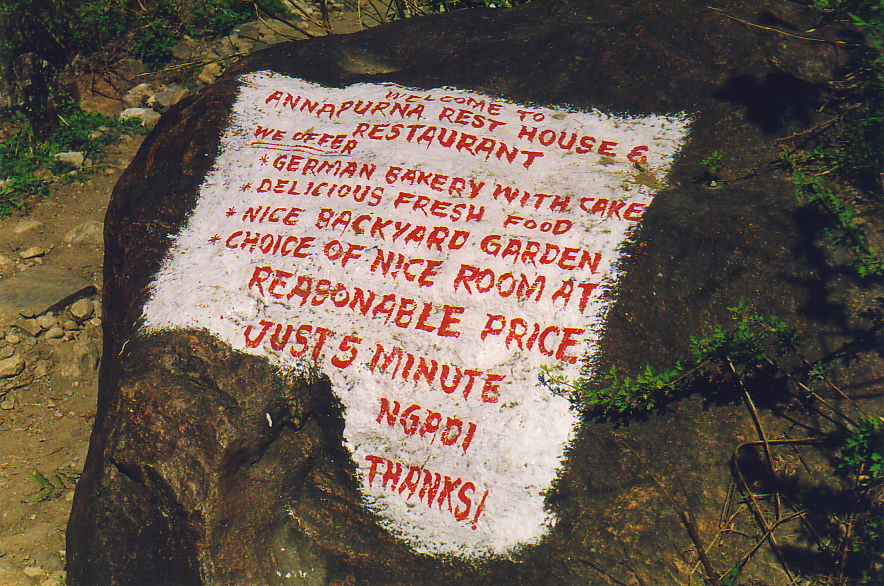 WELCOME TO
ANNAPURNA REST HOUSE &
RESTAURANT
WE OFFER
* GERMAN BAKERY WITH CAKE
* DELICIOUS FRESH FOOD
* NICE BACKYARD GARDEN
* CHOICE OF NICE ROOM AT
REASONABLE PRICE
JUST 5 MINUTE
NGADI
THANKS!